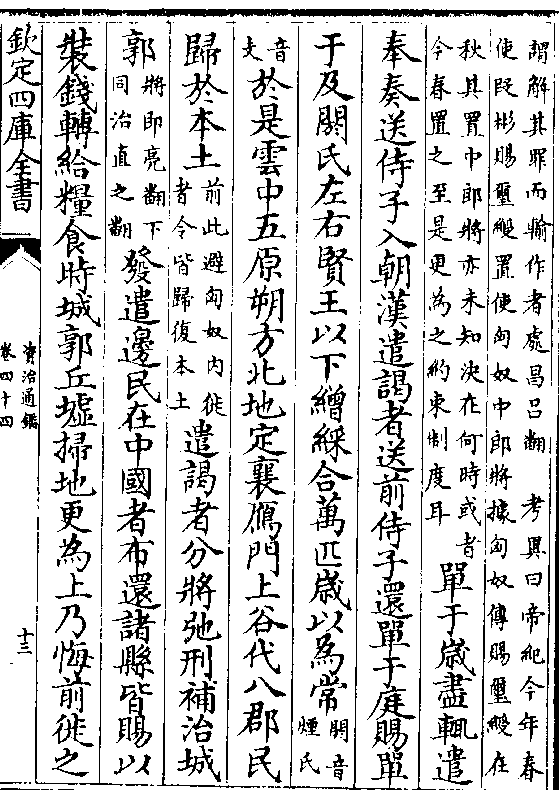 謂解其罪而輸作者處昌呂翻　考異曰帝紀今年春
使段彬賜璽綬置使匈奴中郎將據匈奴傳賜璽綬在
秋其置中郎將亦未知決在何時或者
今春置之至是更為之約束制度耳
單于歳盡輒遣
奉奏送侍子入朝漢遣謁者送前侍子還單于庭賜單
于及閼氏左右賢王以下繒綵合萬匹歳以為常
閼音
煙氏
音
支
於是雲中五原朔方北地定襄鴈門上谷代八郡民
歸於本土
前此避匈奴内徙
者令皆歸復本土
遣謁者分將弛刑補治城
郭
將即亮翻下
同治直之翻
發遣邊民在中國者布還諸縣皆賜以
裝錢轉給糧食時城郭丘墟掃地更為上乃悔前徙之
欽定四庫全書
資治通鑑
卷四十四
十三